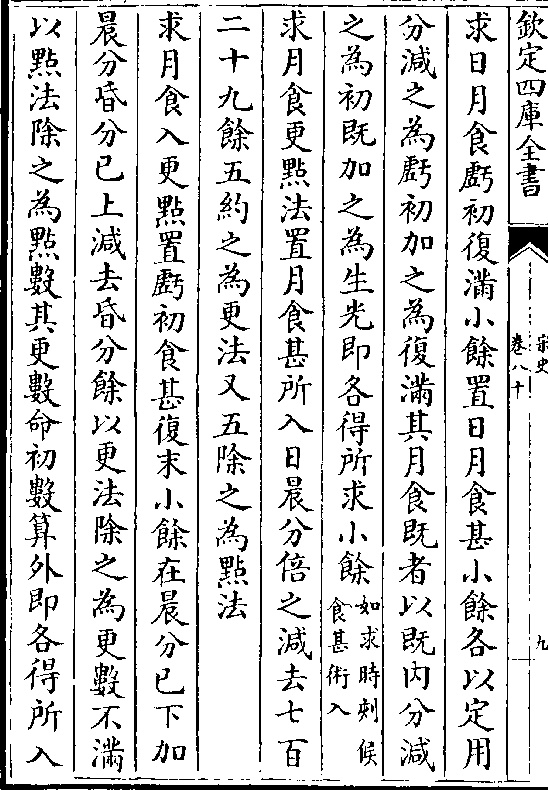 欽定四庫全書
宋史
卷八十
九
求日月食虧初復滿小餘置日月食甚小餘各以定用
分減之為虧初加之為復滿其月食既者以既内分減
之為初既加之為生光即各得所求小餘如求時刻候
食甚術入
求月食更點法置月食甚所入日晨分倍之減去七百
二十九餘五約之為更法又五除之為點法
求月食入更點置虧初食甚復末小餘在晨分已下加
晨分昏分已上減去昏分餘以更法除之為更數不滿
以點法除之為點數其更數命初數算外即各得所入